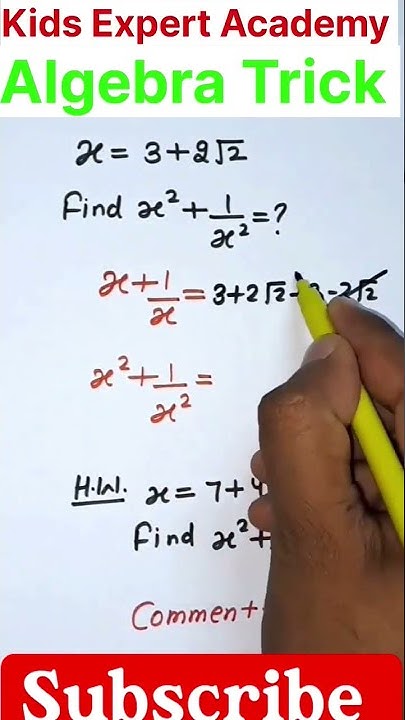 Kids Expert Academy
Algebra Trick
x = 3+2√2
Find x² + 1/x² = ?
x + 1/x = 3+2√2+3-2√2
x² + 1/x² =
H.W. x = 7+4
Find x² +
Comment
Subscribe